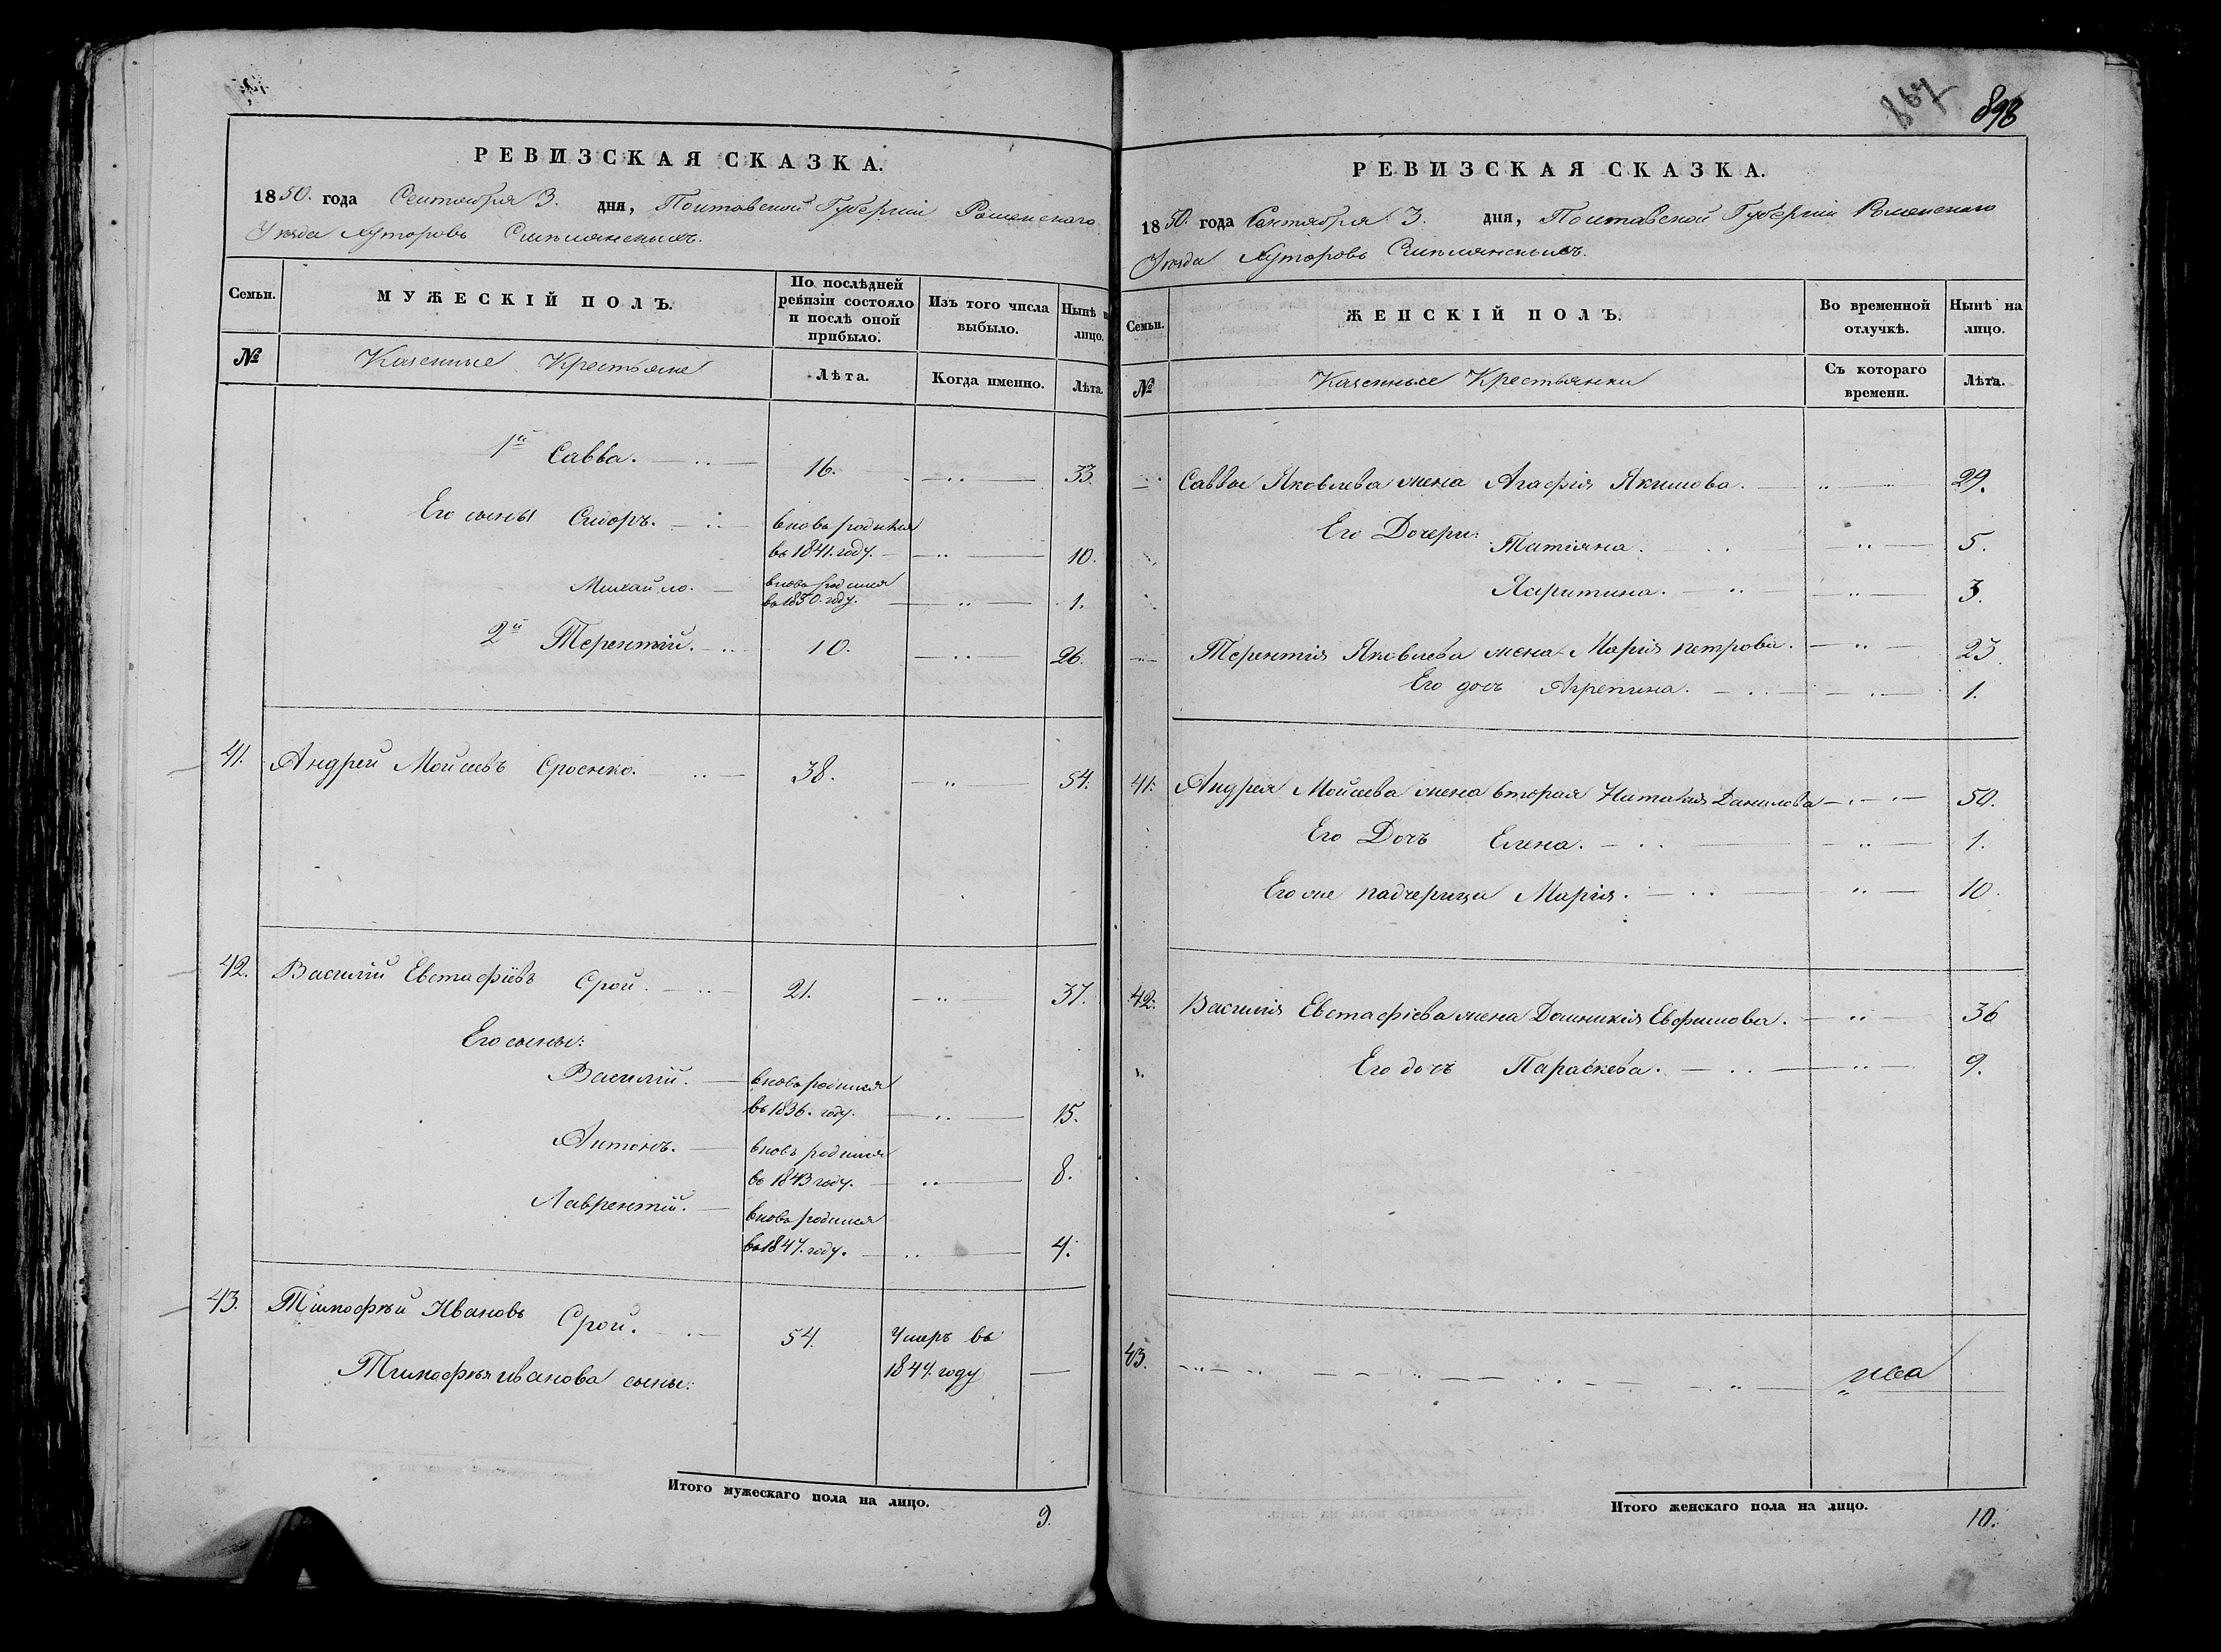 РЕВИЗСКАЯ СКАЗКА.
1850. года Сентября 3. дня, Полтавской Губерніи Роменскаго
Уезда Хуторовъ
Семьи.
МУЖЕСКІЙ ПОЛЪ.
По послѣдней ревизіи состояло и послѣ оной прибыло.
Изъ того числа выбыло.
Нынѣ на лицо.
№
Казенные Крестьяне
Лѣта.
Когда именно.
Лѣта.
1й Савва. 16. 33.
Его сыны Сидоръ. вновь родился
въ 1841. году. 10.
Михайло. вновь родился
въ 1850. году. 1.
2й Терентій. 10. 26.
41. Андрей Мойсеевъ Сроенко. 38. 54.
42. Василій Евстафіевъ Срой. 21. 37.
Его сыны:
Василій. вновь родился
въ 1836. году. 15.
Антонъ. вновь родился
въ 1843 году. 8.
Лаврентій. вновь родился
въ 1847. году. 4.
43. Тимофѣй Ивановъ Срой. 54. Умеръ въ
1844. году
Тимофѣя иванова сыны:
Итого мужескаго пола на лицо.
9.
867 898
РЕВИЗСКАЯ СКАЗКА.
1850. года Сентября 3. дня, Полтавской Губерніи Роменскаго
Уезда Хуторовъ
Семьи.
ЖЕНСКІЙ ПОЛЪ.
Во временной отлучкѣ.
Нынѣ на лицо.
№
Казенные Крестьянки
Съ котораго времени.
Лѣта.
Саввы Яковлева жена Агафія Якимова. 29.
Его Дочери: Татіяна. 5.
Харитина. 3.
Терентія Яковлева жена Марія петрова. 23.
Его дочь Агрепина. 1.
41. Андрея Мойсеева жена вторая Наталія Данилова 50.
Его Дочь Елена. 1.
Его же падчерица Марія. 10.
42. Василія Евстафіева жена Домникія Евфимова. 36
Его дочь Параскева. 9.
43.
Итого женскаго пола на лицо.
10.